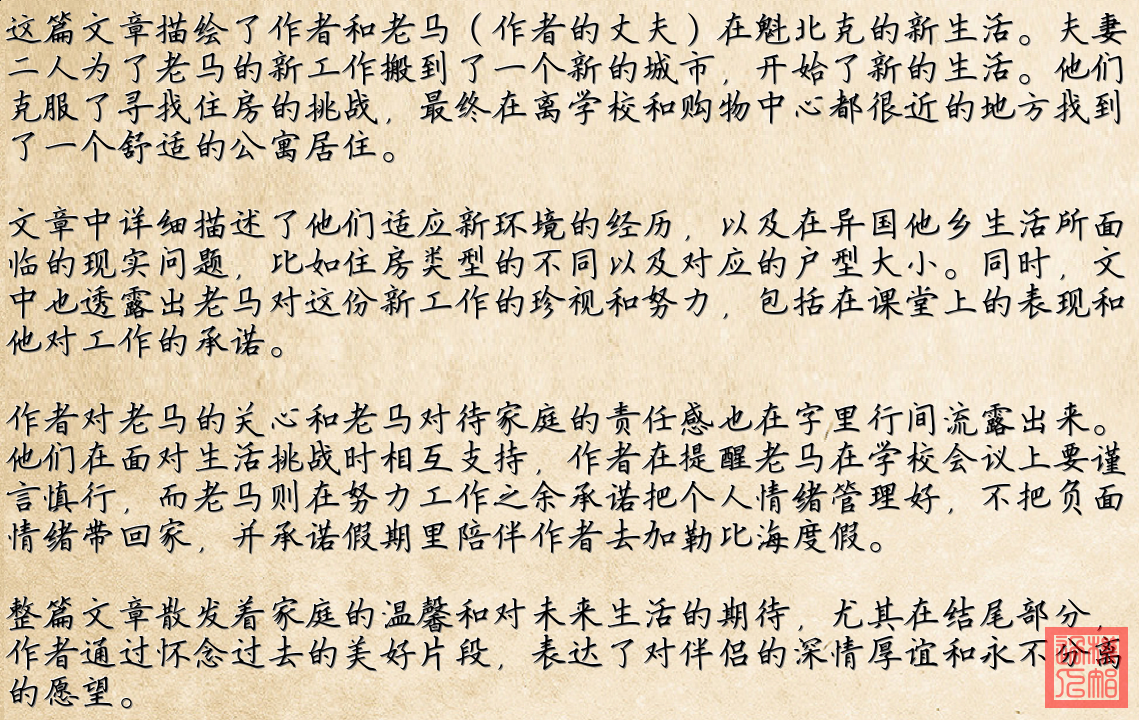 这篇文章描绘了作者和老马（作者的丈夫）在魁北克的新生活。夫妻
二人为了老马的新工作搬到了一个新的城市，开始了新的生活。他们
克服了寻找住房的挑战，最终在离学校和购物中心都很近的地方找到
了一个舒适的公寓居住。
文章中详细描述了他们适应新环境的经历，以及在异国他乡生活所面
临的现实问题，比如住房类型的不同以及对应的户型大小。同时，文
中也透露出老马对这份新工作的珍视和努力，包括在课堂上的表现和
他对工作的承诺。
作者对老马的关心和老马对待家庭的责任感也在字里行间流露出来。
他们在面对生活挑战时相互支持，作者在提醒老马在学校会议上要谨
言慎行，而老马则在努力工作之余承诺把个人情绪管理好，不把负面
情绪带回家，并承诺假期里陪伴作者去加勒比海度假。
整篇文章散发着家庭的温馨和对未来生活的期待，尤其在结尾部分，
作者通过怀念过去的美好片段，表达了对伴侣的深情厚谊和永不分离
的愿望。